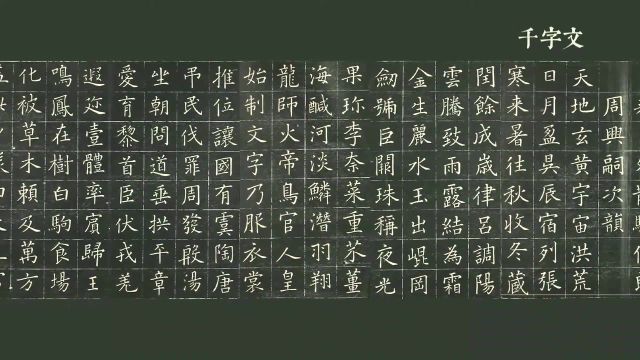 千字文
周興嗣次韻
天地玄黄宇宙洪荒
日月盈昃辰宿列張
寒来暑往秋收冬蔵
閏餘成歳律吕調陽
雲騰致雨露結為霜
金生麗水玉出崐岡
劒號巨闕珠稱夜光
果珎李柰菜重芥薑
海鹹河淡鱗潜羽翔
龍師火帝鳥官人皇
始制文字乃服衣裳
推位讓國有虞陶唐
弔民伐罪周發殷湯
坐朝問道垂拱平章
愛育黎首臣伏戎羌
遐迩壹體率賓歸王
鳴鳳在樹白駒食場
化被草木頼及萬方